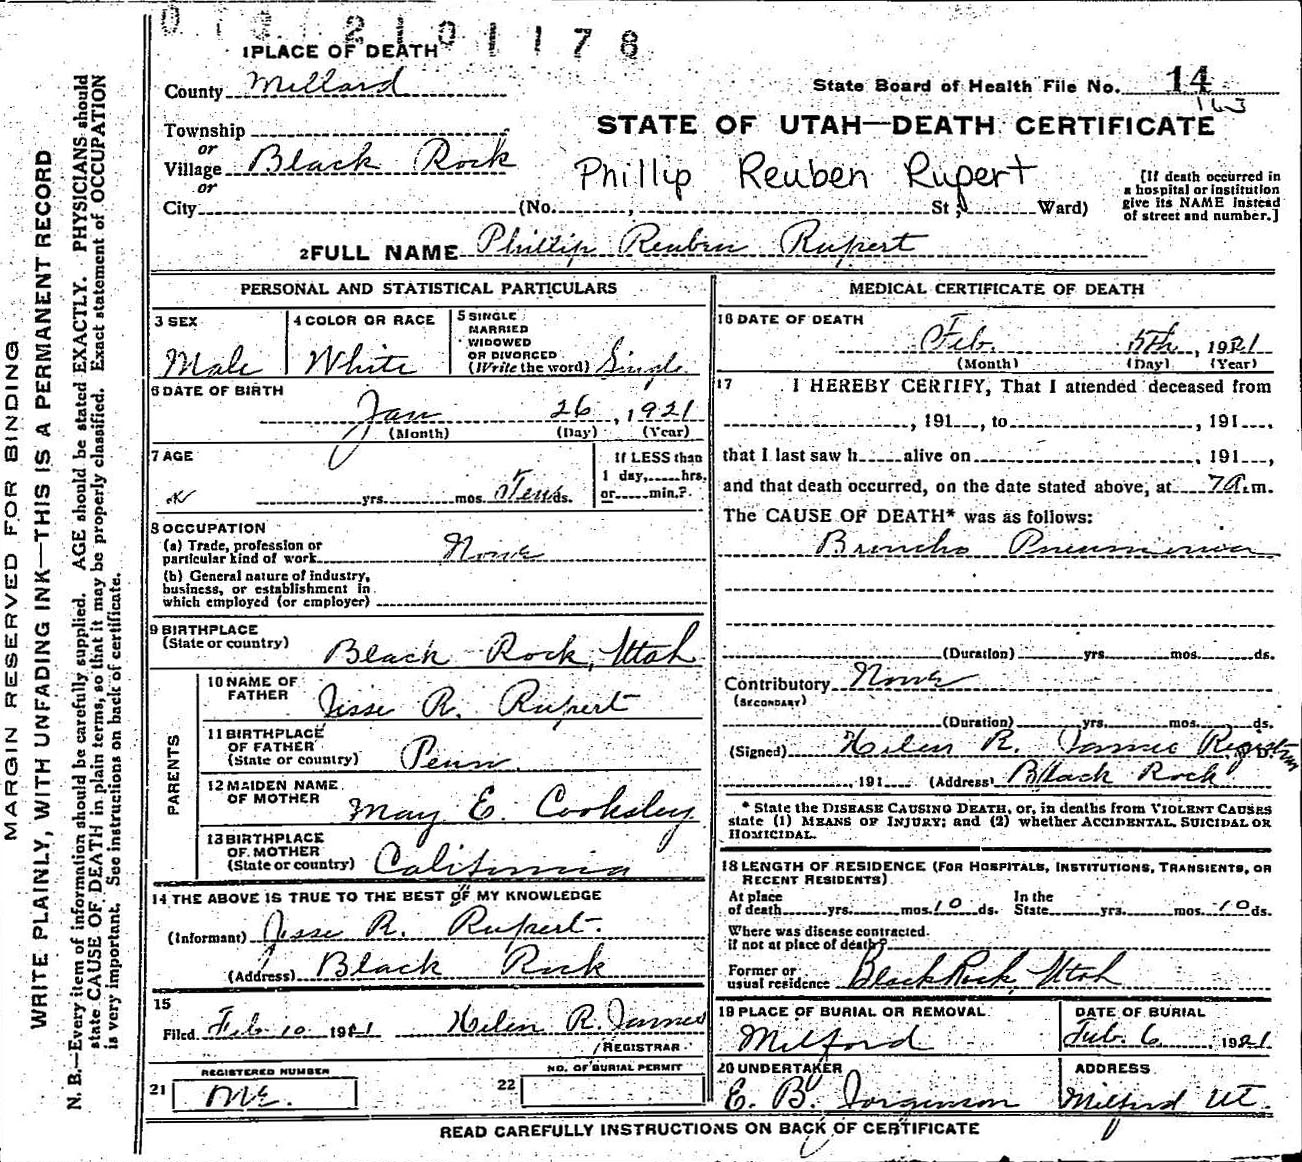 2101178
1 PLACE OF DEATH
County Millard
State Board of Health File No. 14
163
Township
or
Village Black Rock
or
City (No. , St ; Ward)
STATE OF UTAH—DEATH CERTIFICATE
Phillip Reuben Rupert
[If death occurred in
a hospital or institution
give its NAME instead
of street and number.]
2 FULL NAME Phillip Reuben Rupert
PERSONAL AND STATISTICAL PARTICULARS
3 SEX
Male
4 COLOR OR RACE
White
5 SINGLE
MARRIED
WIDOWED
OR DIVORCED
(Write the word) Single
6 DATE OF BIRTH
Jan 26, 1921
(Month) (Day) (Year)
7 AGE
yrs. mos. Ten ds.
If LESS than
1 day, hrs.
or min.?
8 OCCUPATION
(a) Trade, profession or
particular kind of work None
(b) General nature of industry,
business, or establishment in
which employed (or employer)
9 BIRTHPLACE
(State or country) Black Rock, Utah
PARENTS
10 NAME OF
FATHER Jisse R. Rupert
11 BIRTHPLACE
OF FATHER
(State or country) Penn.
12 MAIDEN NAME
OF MOTHER May E. Cooksley
13 BIRTHPLACE
OF MOTHER
(State or country) California
14 THE ABOVE IS TRUE TO THE BEST OF MY KNOWLEDGE
(Informant) Jisse R. Rupert.
(Address) Black Rock
15
Filed Feb 10 1921 Helen R. James
REGISTRAR
REGISTERED NUMBER
21
NO. OF BURIAL PERMIT
22
MEDICAL CERTIFICATE OF DEATH
16 DATE OF DEATH
Feb. 5th, 1921
(Month) (Day) (Year)
17 I HEREBY CERTIFY, That I attended deceased from
, 191 , to , 191 ,
that I last saw h alive on , 191 ,
and that death occurred, on the date stated above, at 7 a.m.
The CAUSE OF DEATH* was as follows:
Broncho Pneumonia
(Duration) yrs. mos. ds.
Contributory None
(SECONDARY)
(Duration) yrs. mos. ds.
(Signed) Helen R. James Registrar
, 191 (Address) Black Rock
* State the DISEASE CAUSING DEATH, or, in deaths from VIOLENT CAUSES
state (1) MEANS OF INJURY; and (2) whether ACCIDENTAL, SUICIDAL OR
HOMICIDAL.
18 LENGTH OF RESIDENCE (FOR HOSPITALS, INSTITUTIONS, TRANSIENTS, OR
RECENT RESIDENTS)
At place
of death yrs. mos. 10 ds.
In the
State yrs. mos. 10 ds.
Where was disease contracted.
if not at place of death?
Former or
usual residence Black Rock, Utah
19 PLACE OF BURIAL OR REMOVAL
Milford
DATE OF BURIAL
Feb. 6 1921
20 UNDERTAKER
E. B. Jorgenson
ADDRESS
Milford Ut.
READ CAREFULLY INSTRUCTIONS ON BACK OF CERTIFICATE
MARGIN RESERVED FOR BINDING
WRITE PLAINLY, WITH UNFADING INK—THIS IS A PERMANENT RECORD
N. B.—Every item of information should be carefully supplied. AGE should be stated EXACTLY. PHYSICIANS should
state CAUSE OF DEATH in plain terms, so that it may be properly classified. Exact statement of OCCUPATION
is very important. See instructions on back of certificate.